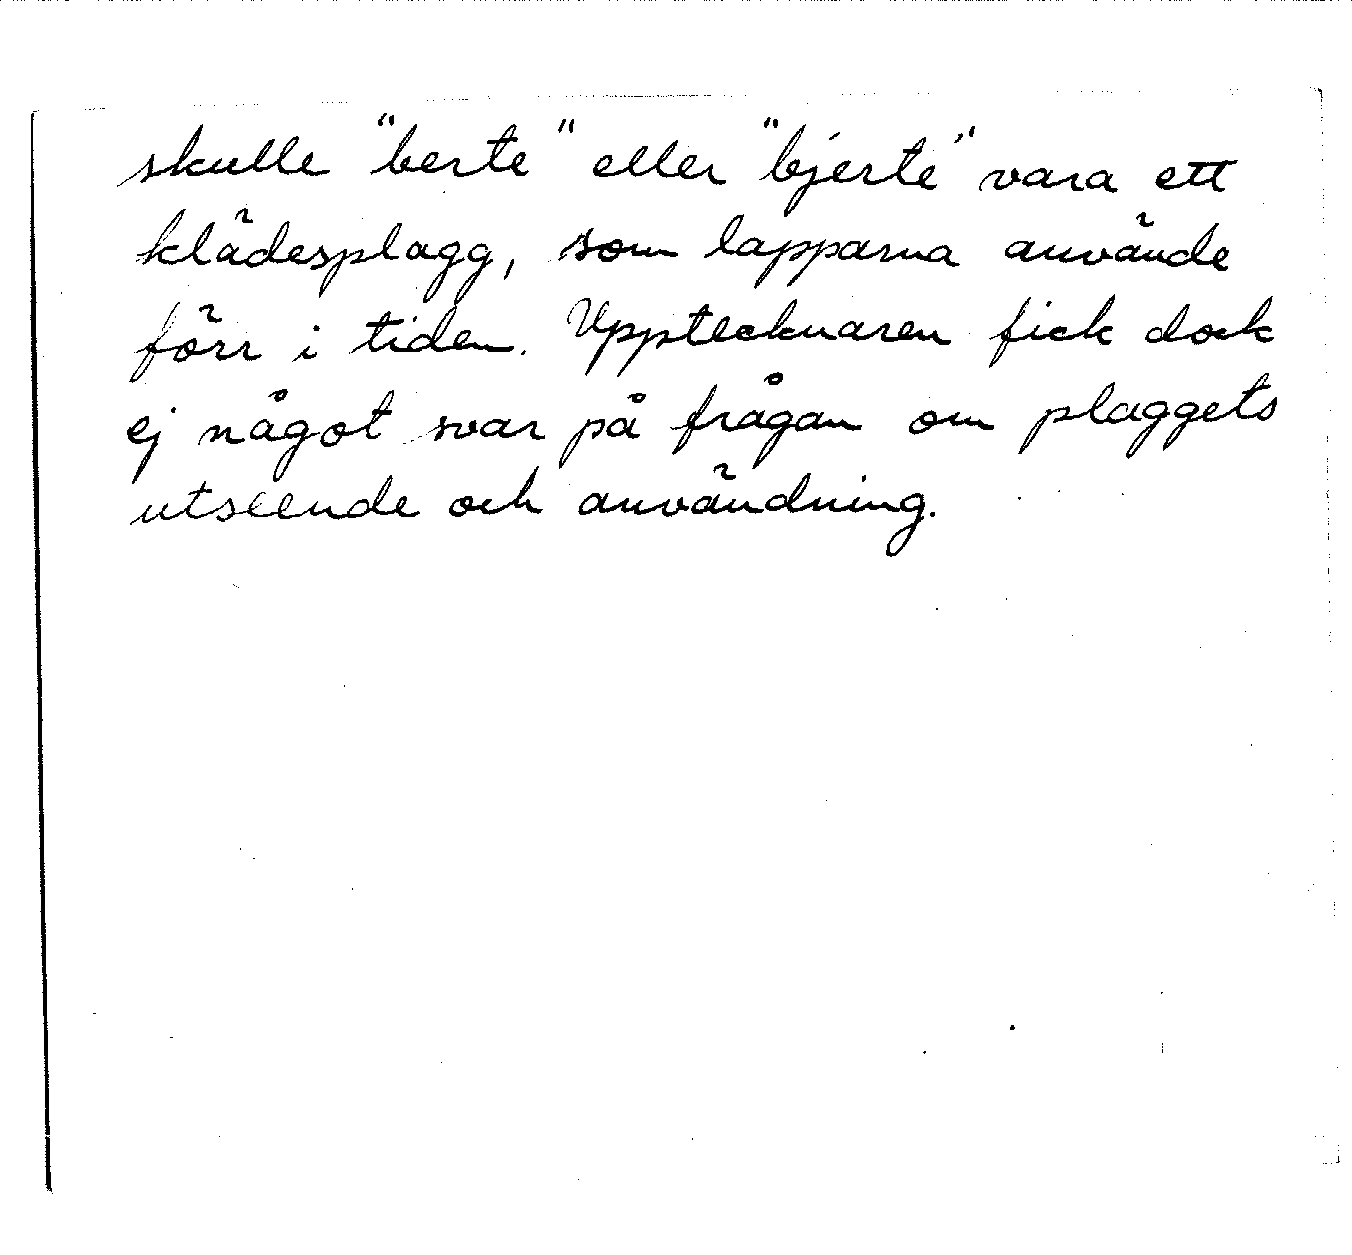 skulle "berte" eller "bjerte" vara ett
klädesplagg, som lapparna använde
förr i tiden. Upptecknaren fick dock
ej något svar på frågan om plaggets
utseende och användning.